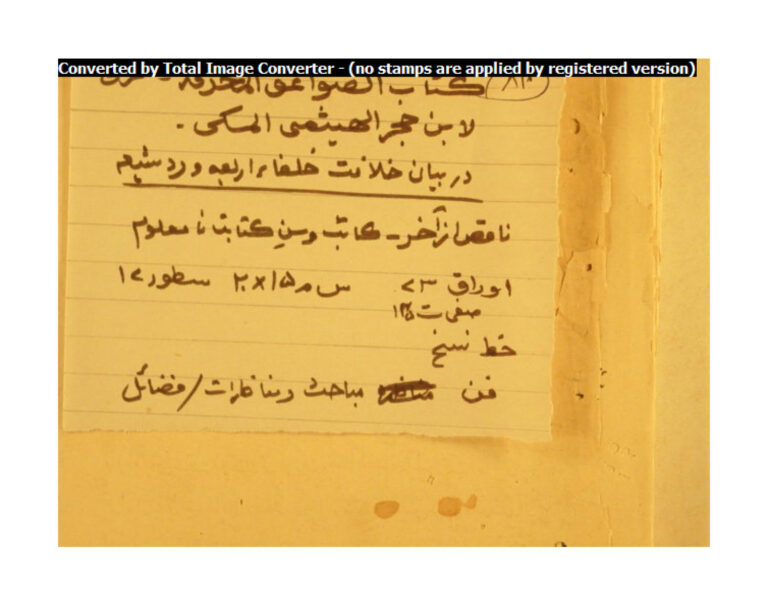 Converted by Total Image Converter - (no stamps are applied by registered version)
كتاب الصواعق المحرقة
لابن حجر الهيثمى المكى -
در بيان خلافت خلفاء اربعه و رد شيعه
ناقص از آخر - كاتب وسنِ كتابت نا معلوم
اوراق س ١٥×٢٠ سطور
صفحات
خط نسخ
فن مباحث ومناظرات / فضائل